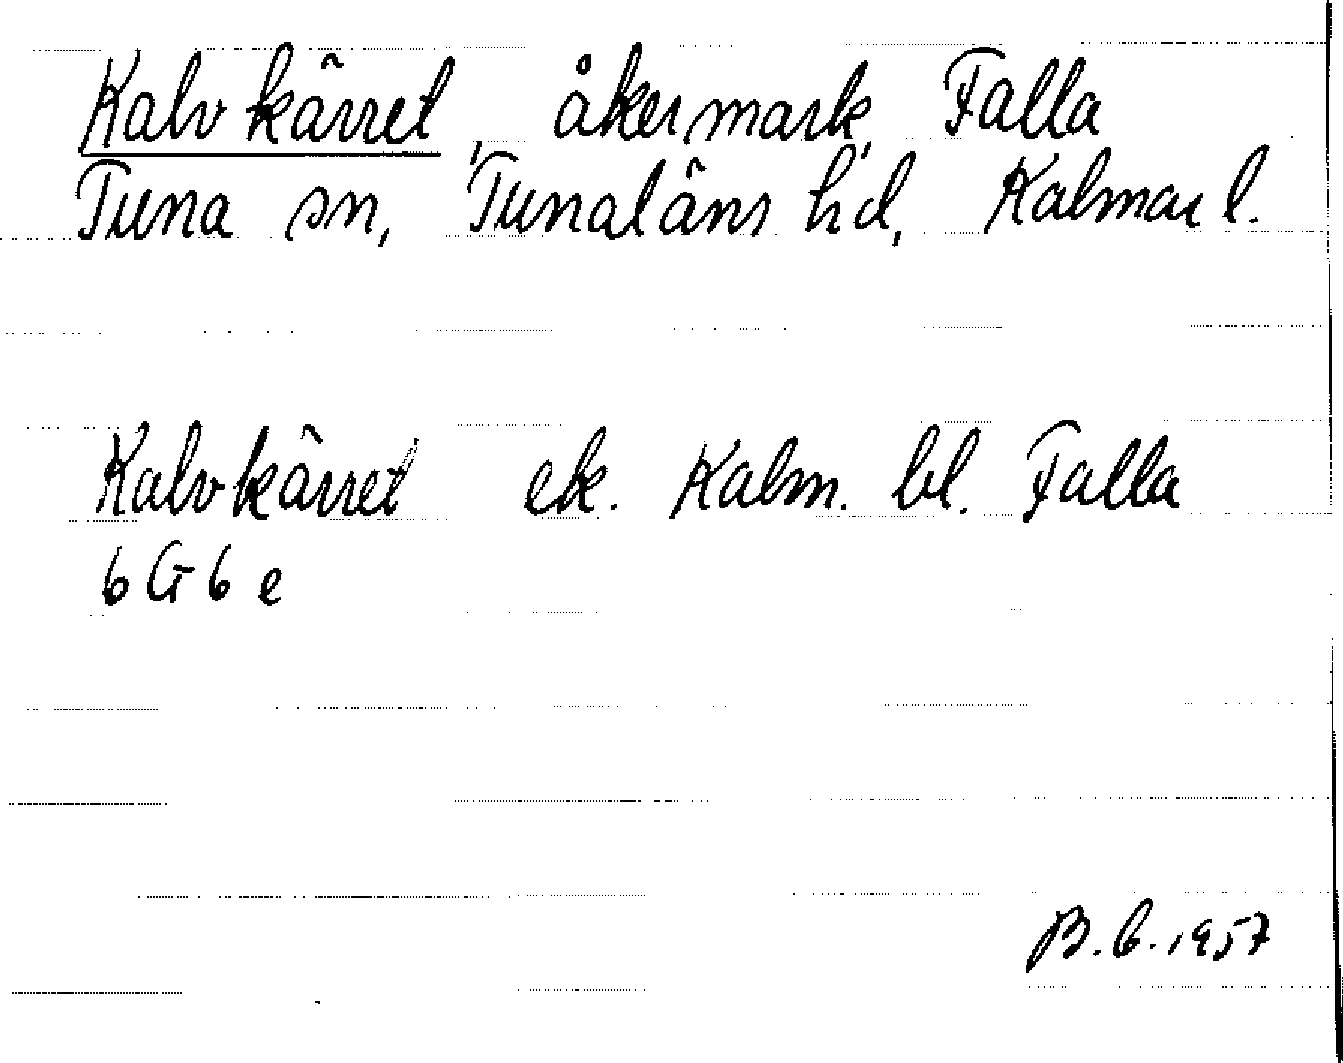 Kalvkärret, åkermark, Falla
Tuna sn, Tunaläns hd, Kalmar l.
Kalvkärret ek. Kalm. bl. Falla
6 G 6 e
B.C. 1957